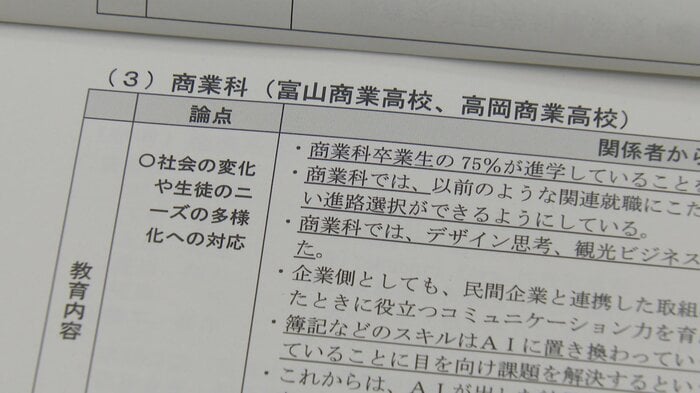 （３）商業科（富山商業高校、高岡商業高校）
論点
関係者から
教育内容
○社会の変化
や生徒のニ
ーズの多様
化への対応
・商業科卒業生の75％が進学していること
・商業科では、以前のような関連就職にこだ
い進路選択ができるようにしている。
・商業科では、デザイン思考、観光ビジネス
た。
・企業側としても、民間企業と連携した取組
たときに役立つコミュニケーション力を育
・簿記などのスキルはＡＩに置き換わってい
ていることに目を向け課題を解決するとい
・これからは、ＡＩが出した